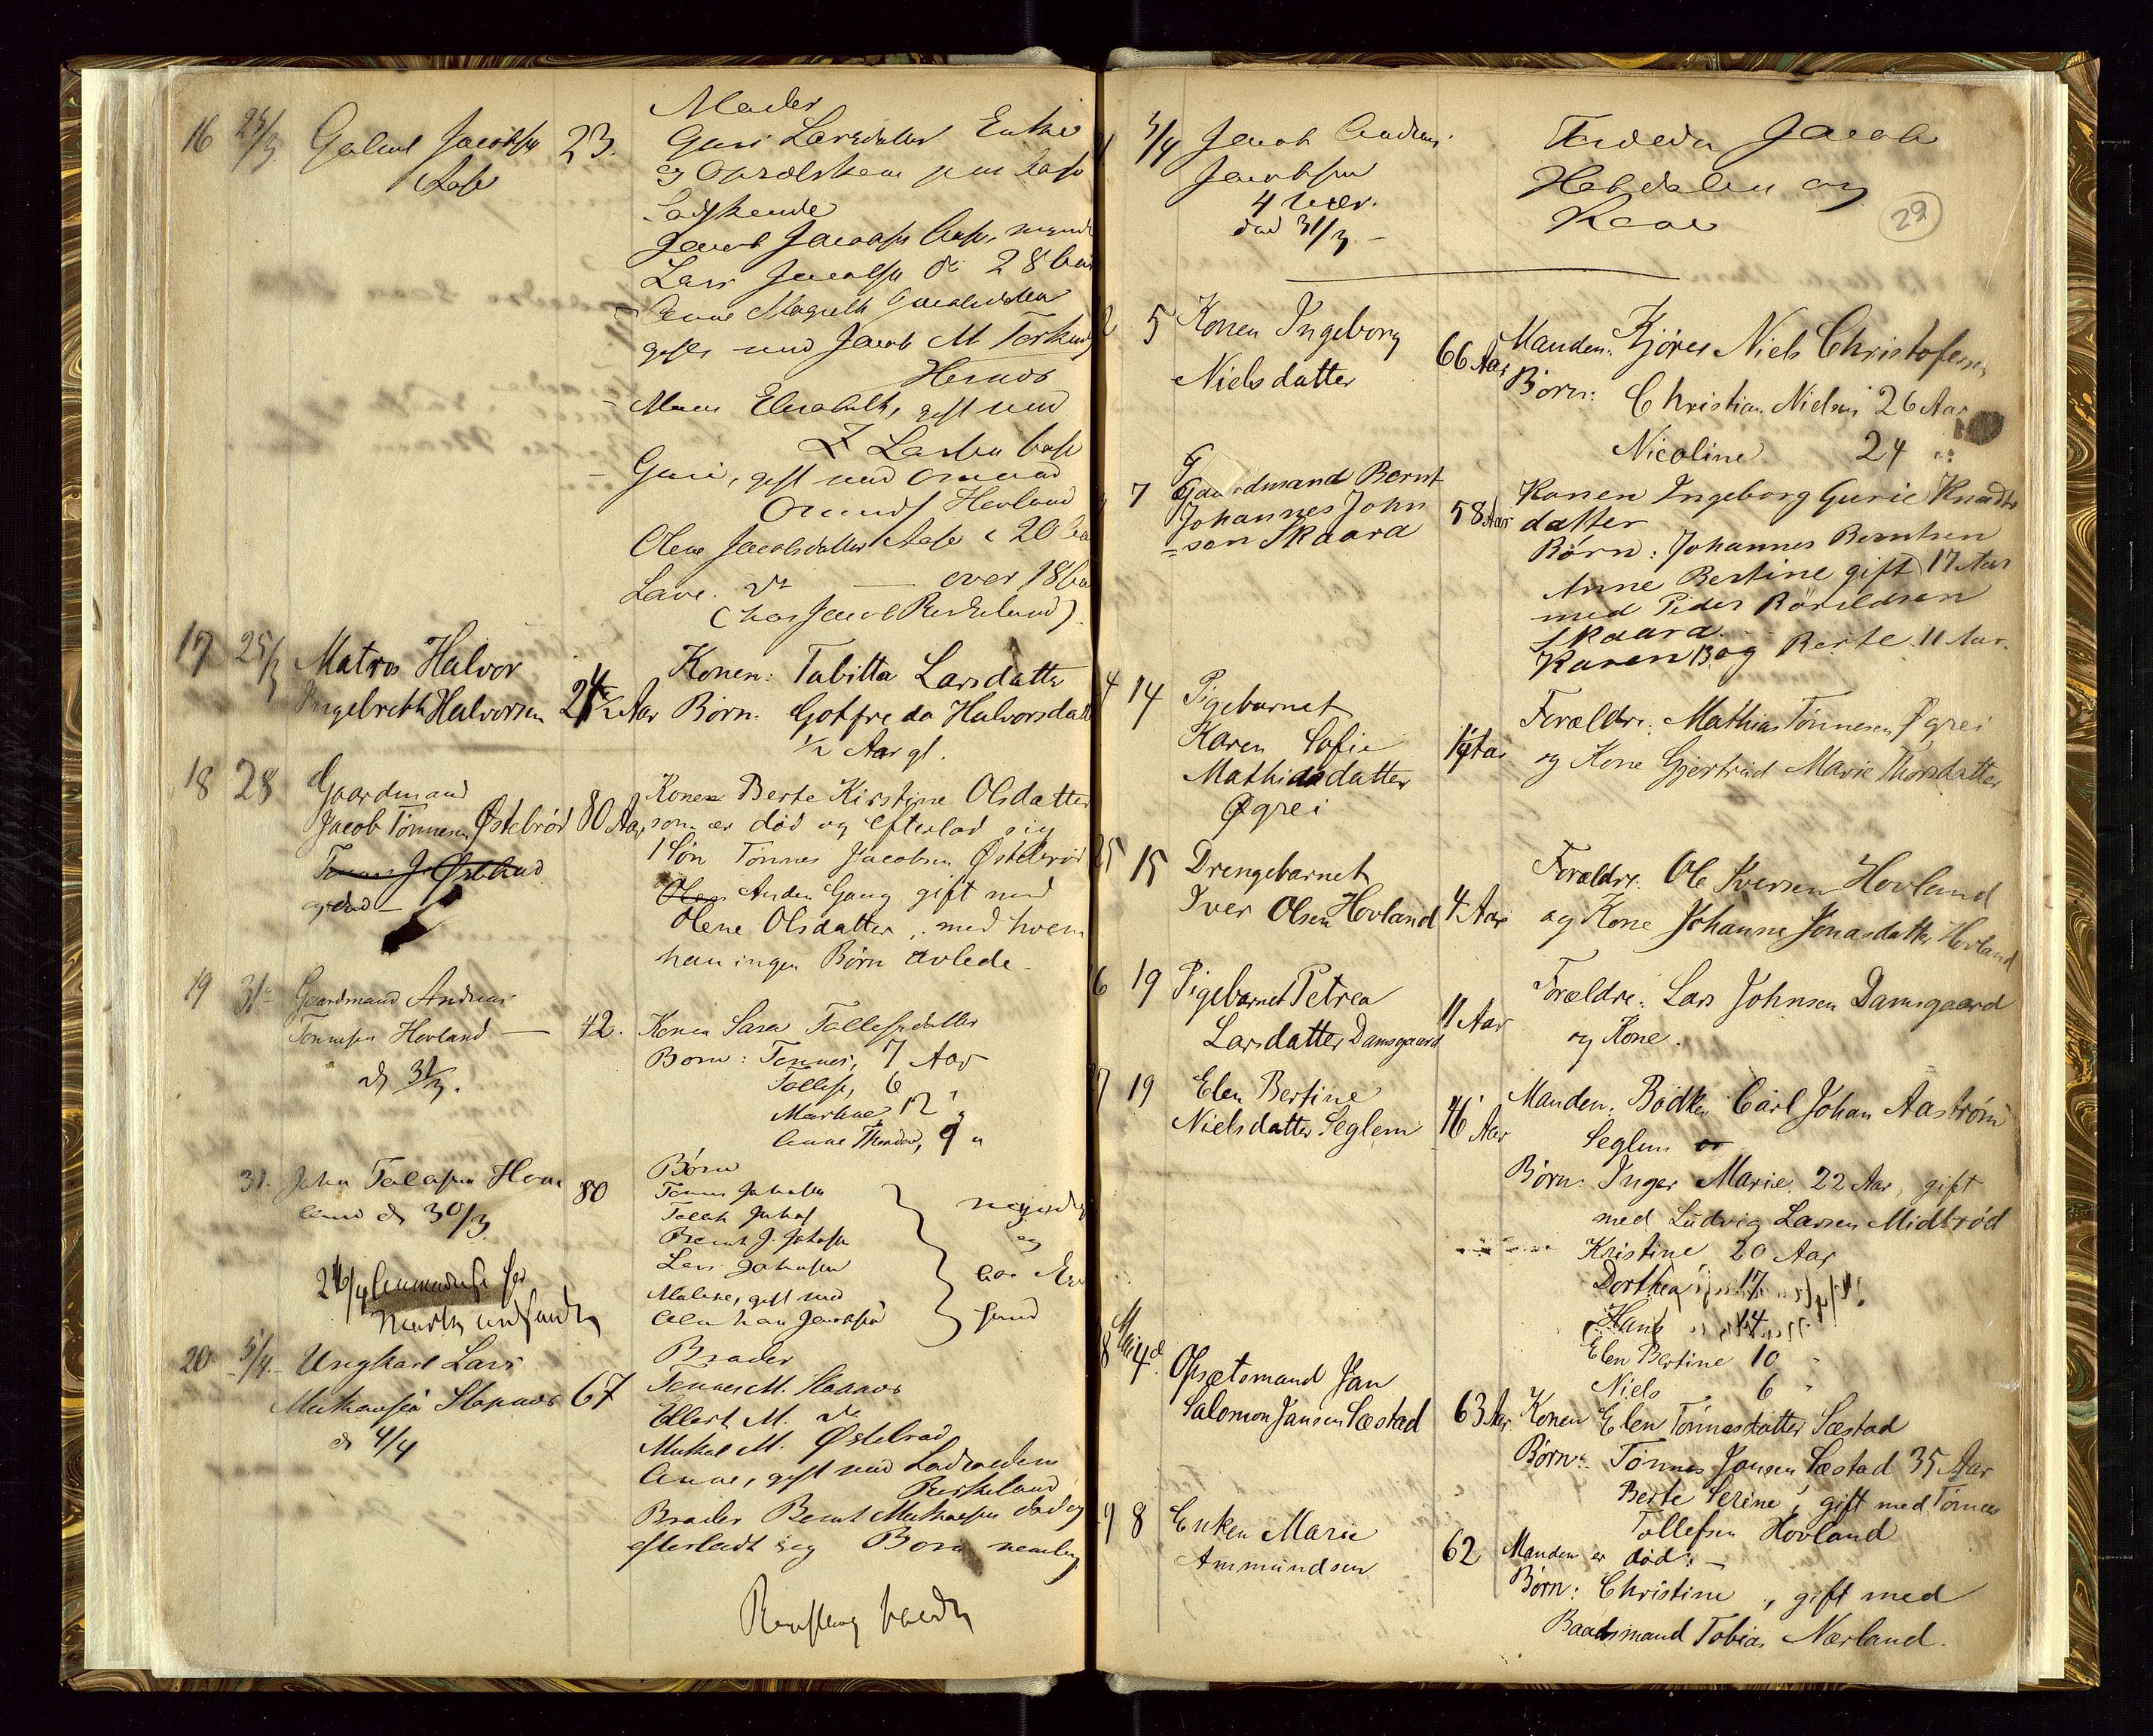 16 24/3 Gabriel Jacobsen 23.
Aase
Moder
Guri Larsdatter Enke
Sødskende
Jacob Jacobsen Aase, myndig
Lars Jacobsen 28 Aar
Anne Magreth Jacobsdatter
gift med Jacob M Torkels
- Maren Elisabeth, gift med
Larsen Aase
- Guri, gift med Omund
Omunds Hovland
Olene Jacobsdatter Aase 20 Aar
Lave. do — over 18 Aar
(hos Jacob Birkeland)
17 25/3 Matros Halvor
Ingebreth Halvorsen 24 1/2 Aar
Konen: Tabitta Larsdatter
Børn: Gotfreda Halvorsdatter
1/2 Aar gl.
18 28 Gaardmand
Jacob Tønnesen Østebrød 80 Aar
Konen Berte Kirstine Olsdatter
som er død og efterlod sig
1 Søn Tønnes Jacobsen Østebrød
Anden Gang gift med
Olene Olsdatter, med hvem
han ingen Børn avlede -
19 31 Gaardmand Andreas
Tønnesen Hovland — 42.
d 31/3.
Konen Sara Tollefsdatter
Børn: Tønnes, 7 Aar
Tollef, 6 "
Martine 12 "
Anne Theodora, 9 "
31. John Tollefsen Hov
land d 30/3. 80
Børn
Tønnes Johnsen
Tollef Johns
Bernt J. Johnsen
Lars Johnsen
Malene, gift med
Jacobsen
myndige
og
20 5/4 Ungkarl Lars
Mikaelsen Stapnes 67
d 4/4
Broder
Tønnes M. Stapnes
Ellert M. do
Mikael M. Østebrød
Anne, gift med
Birkeland
Broder Bernt Mikaelsen død og
efterladt sig Børn nemlig
5/4 Jacob Andreas
Jacobsen
4 Uger.
død 31/3 -
Forældre Jacob
Hebdalen og
Kone
29
5 Konen Ingeborg
Nielsdatter 66 Aar
Manden: Kjører Niels Christofersen
Børn: Christian Nielsen 26 Aar
Nicoline 24 "
7 Gaardmand Bernt
Johannes John
=sen Skaara 58 Aar
Konen Ingeborg Gurie Knuds
datter
Børn: Johannes Berntsen
17 Aar
Anne Bertine gift
med Peder Bårildsen
Skaara.
Karen B og Berte. 11 Aar.
4 14 Pigebarnet
Karen Sofie
Mathiasdatter
Øgrei
Forældre: Mathias Tønnesen Øgrei
og Kone Gjertrud Marie Thorsdatter
25 15 Drengebarnet
Iver Olsen Hovland 4 Aar
Forældre: Ole Iversen Hovland
og Kone Johanne Jonasdatter Hovland
6 19 Pigebarnet Petrea
Larsdatter Damsgaard 11 Aar
Forældre: Lars Johnsen Damsgaard
og Kone.
7 19 Elen Bertine
Nielsdatter Seglem 46 Aar
Manden: Bødker Carl Johan Aastrøm
Seglem
Børn: Inger Marie 22 Aar, gift
med Ludvig Larsen Midbrød
Kristine 20 Aar
Dorthea 17
Hans 14
Elen Bertine 10 "
Niels 6 "
8 Mai 4d Opsætsmand Jan
Salomon Jansen Sæstad 63 Aar
Konen Elen Tønnesdatter Sæstad
Børn: Tønnes Jansen Sæstad 35 Aar
Berte Serine, gift med Tønnes
Tollefsen Hovland
9 8 Enken Marie
Ammundsen 62
Manden er død: -
Børn: Christine, gift med
Baadsmand Tobias Nærland.